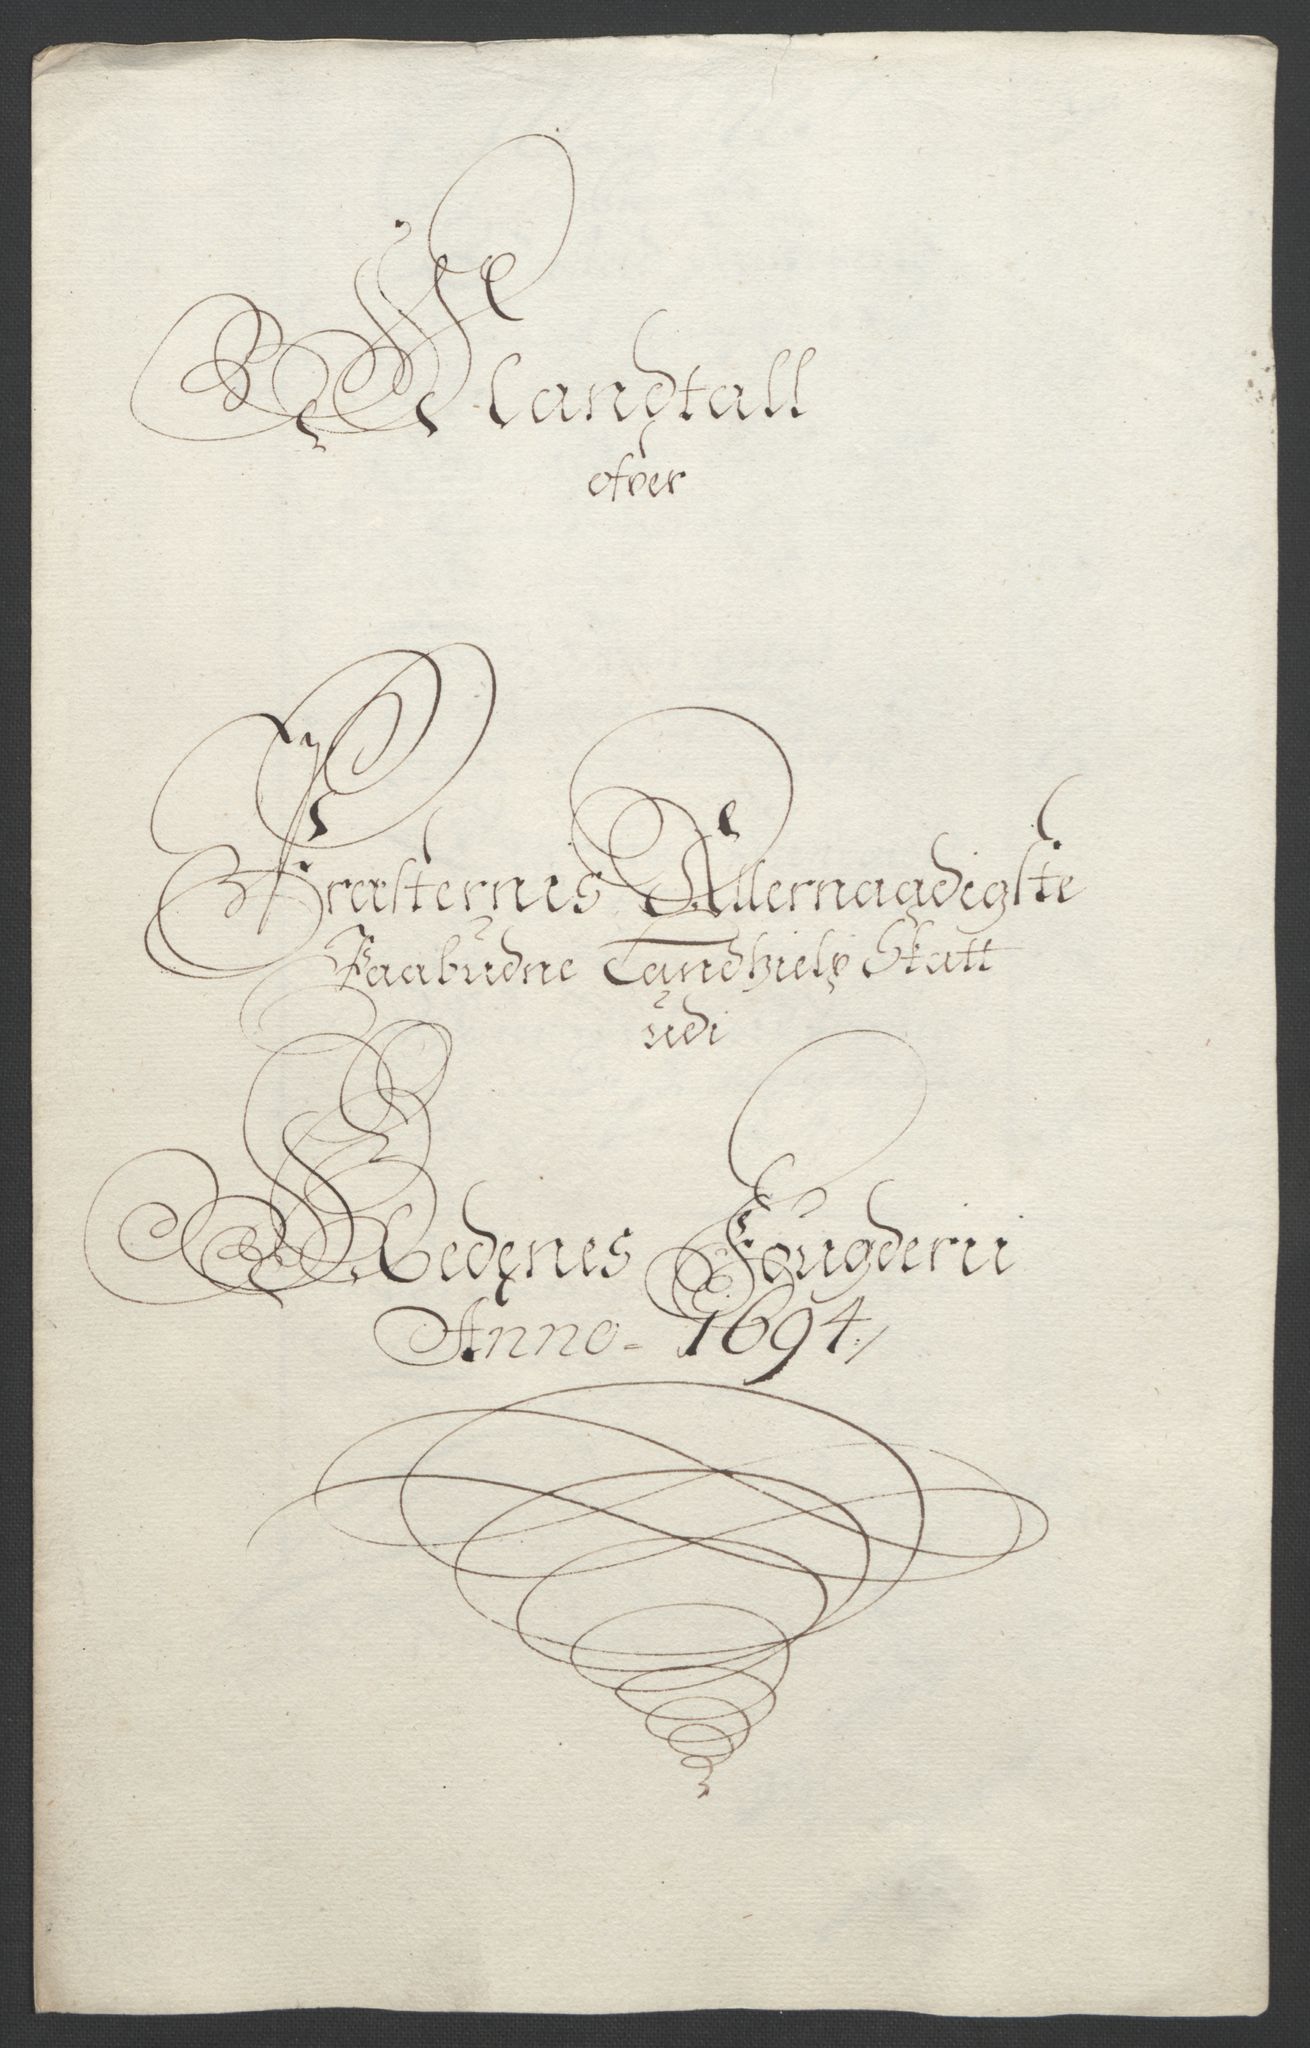 Mandtall
ofver
Præsternis Allernaadigste
Paabudne Landhielp Skatt
udi
Nedenes Fougderii
Anno - 1694 /